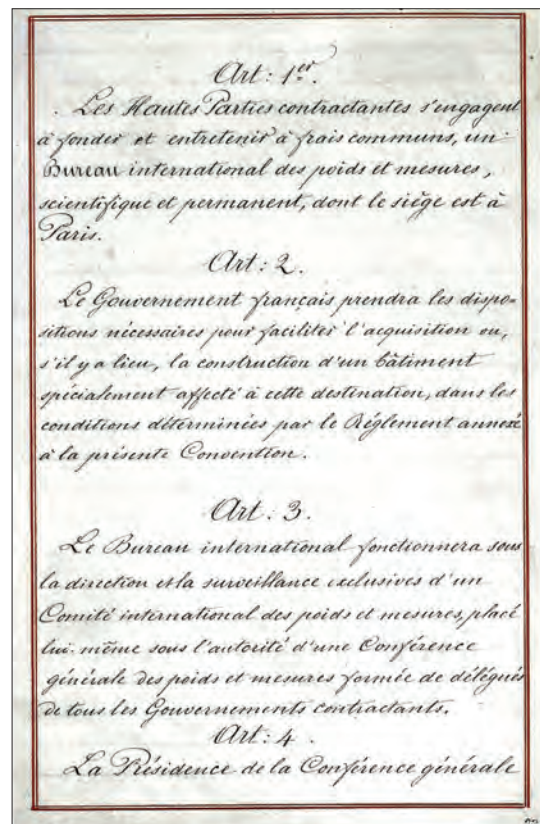 Art: 1er.
Les Hautes Parties contractantes s'engagent
à fonder et entretenir à frais communs, un
Bureau international des poids et mesures,
scientifique et permanent, dont le siège est à
Paris.
Art: 2.
Le Gouvernement français prendra les dispo-
sitions nécessaires pour faciliter l'acquisition ou,
s'il y a lieu, la construction d'un bâtiment
spécialement affecté à cette destination, dans les
conditions déterminées par le Règlement annexé
à la présente Convention.
Art: 3.
Le Bureau international fonctionnera sous
la direction et la surveillance exclusives d'un
Comité international des poids et mesures, placé
lui-même sous l'autorité d'une Conférence
générale des poids et mesures formée de délégués
de tous les Gouvernements contractants.
Art: 4.
La Présidence de la Conférence générale